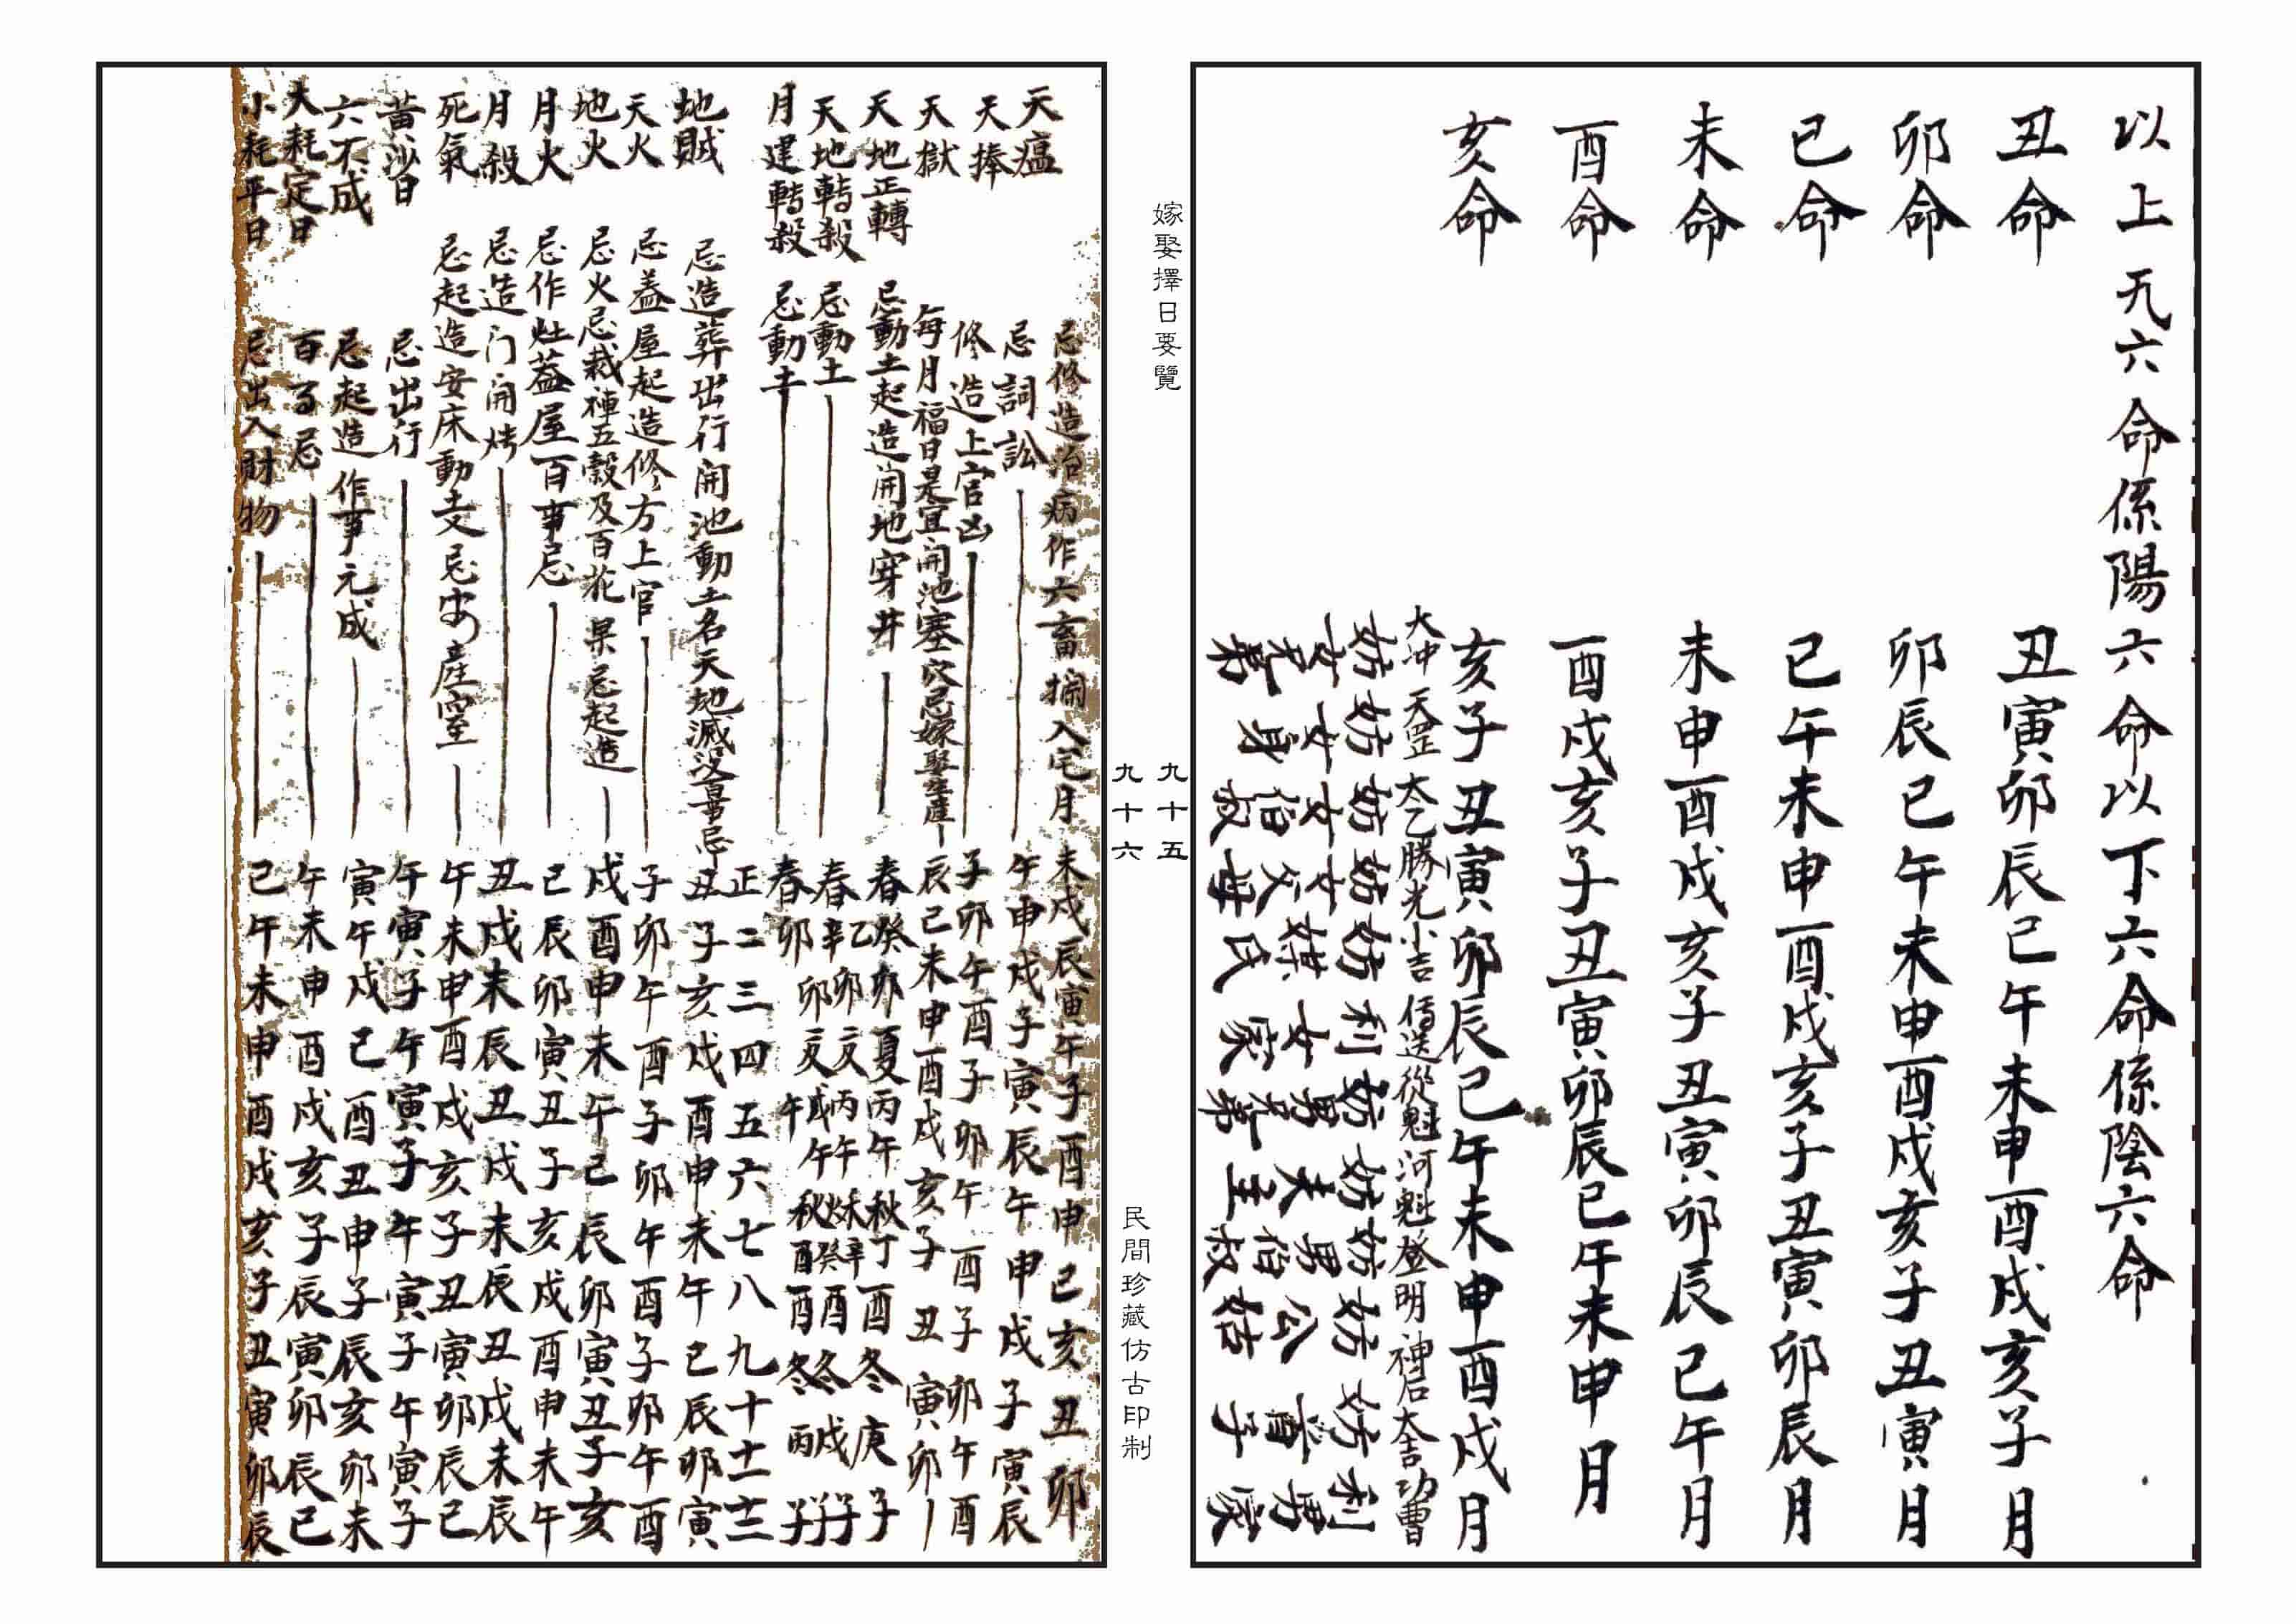 以上六命係陽六命以下六命係陰六命
丑命 丑寅卯辰巳午未申酉戌亥子月
卯命 卯辰巳午未申酉戌亥子丑寅月
巳命 巳午未申酉戌亥子丑寅卯辰月
未命 未申酉戌亥子丑寅卯辰巳午月
酉命 酉戌亥子丑寅卯辰巳午未申月
亥命 亥子丑寅卯辰巳午未申酉戌月
大冲 天罡 太乙 勝光 小吉 傳送 從魁 河魁 登明 神后 大吉 功曹
妨女兄弟
妨女身
妨女伯叔
妨女父母
妨媒氏
利女家
妨男兄弟
妨夫主
妨男伯叔
妨公姑
妨首子
利男家
嫁娶擇日要覽
九十五
九十六
民間珍藏仿古印制
天瘟 忌修造治病作六畜欄入宅月 未戌辰寅午子酉申巳亥丑卯
天捧 忌詞訟 午申戌子寅辰午申戌子寅辰
天獄 修造上官凶 子卯午酉子卯午酉子卯午酉
每月福日是宜開池塞穴忌嫁娶生產 辰巳未申酉戌亥子丑寅卯
天地正轉 忌動土起造開地穿井 春癸卯夏丙午秋丁酉冬庚子
天地轉殺 忌動土 春乙卯辛卯夏丙午戊午秋辛酉癸酉冬
月建轉殺 忌動土 春卯夏午秋酉冬子
正二三四五六七八九十十一十二
地賊 忌造葬出行開池動土名天地滅沒 丑子亥戌酉申未午巳辰卯寅
天火 忌蓋屋起造修方上官 子卯午酉子卯午酉子卯午酉
地火 忌火忌栽種五穀及百花果忌起造 戌酉申未午巳辰卯寅丑子亥
月火 忌作灶蓋屋百事忌 巳辰卯寅丑子亥戌酉申未午
月殺 忌造门開 丑戌未辰丑戌未辰丑戌未辰
死氣 忌起造安床動土又忌安產室 午未申酉戌亥子丑寅卯辰巳
黃沙日 忌出行 午寅子午寅子午寅子午寅子
六不成 忌起造作事元成 寅午戌巳酉丑申子辰亥卯未
大耗定日 百事忌 午未申酉戌亥子辰寅卯辰巳
小耗平日 忌出入財物 巳午未申酉戌亥子丑寅卯辰